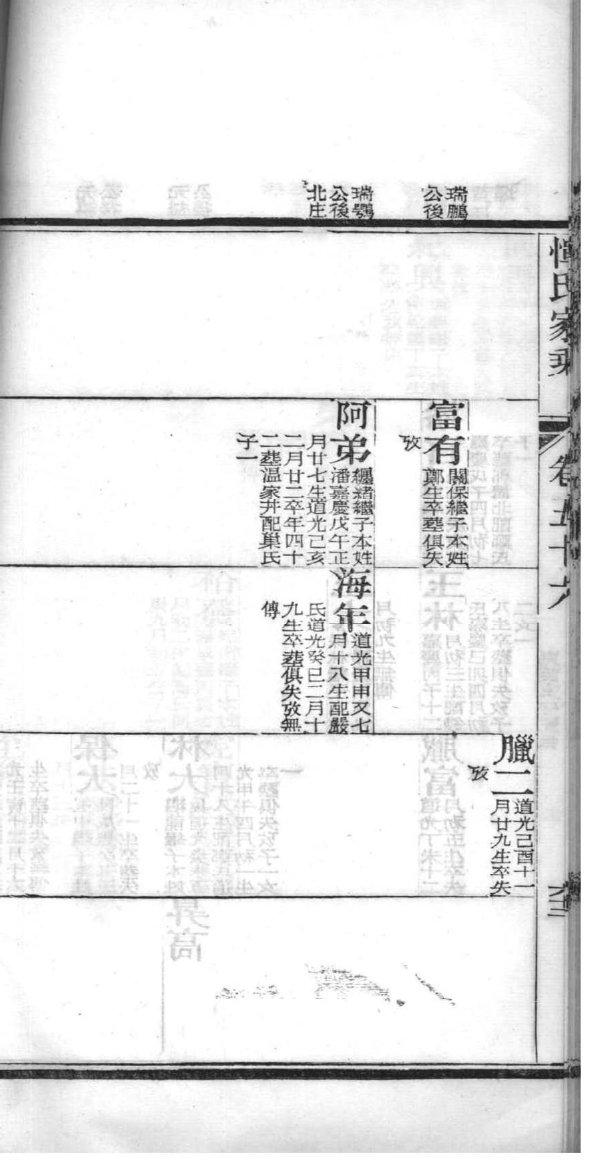 惲氏家乘
卷五十六
六十三
瑞鵬
公後
瑞鸚
公後
北庄
富有
關保繼子本姓
鄭生卒塟俱失
攷
阿弟
纘緒繼子本姓
潘嘉慶戊午正
月廿七生道光己亥
二月廿二卒年四十
二塟溫家井配巢氏
子一
海年
道光甲申又七
月十八生配嚴
氏道光癸巳二月十
九生卒塟俱失攷無
傳
臘二
道光己酉十一
月廿九生卒失
攷